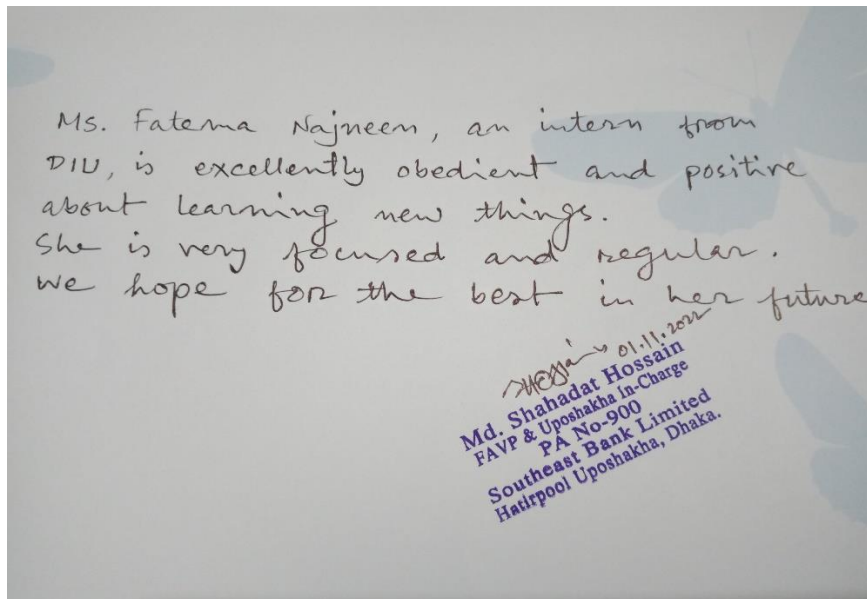 Ms. Fatema Najneen, an intern from
DIU, is excellently obedient and positive
about learning new things.
She is very focused and regular.
We hope for the best in her future
01.11.2022
Md. Shahadat Hossain
FAVP & Uposhakha In-Charge
PA No-900
Southeast Bank Limited
Hatirpool Uposhakha, Dhaka.